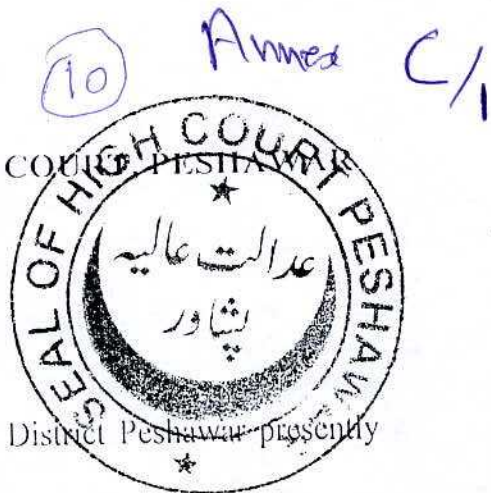 10 Annex C/1
COURT, PESHAWAR
SEAL OF HIGH COURT PESHAWAR
عدالت عالیہ
پشاور
District Peshawar presently